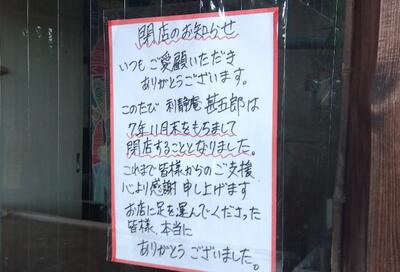 閉店のお知らせ
いつもご愛顧いただき
ありがとうございます。
このたび 利静庵 甚五郎は
7年11月末をもちまして
閉店することとなりました。
これまで皆様からのご支援
心より感謝申し上げます
お店に足を運んでくださった
皆様、本当に
ありがとうございました。